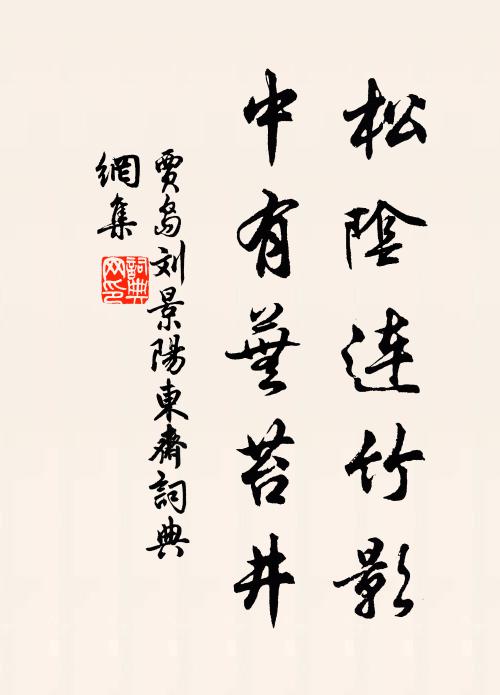 松陰連竹影
中有蕪苔井
賈島刘景陽東齋詞典
網集
詞典網印